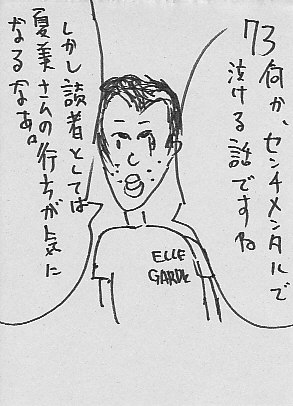 73何か、センチメンタルで
泣ける話ですね
しかし読者としては
夏美さんの行ちが気に
なるなあ。
ELLE
GARDE